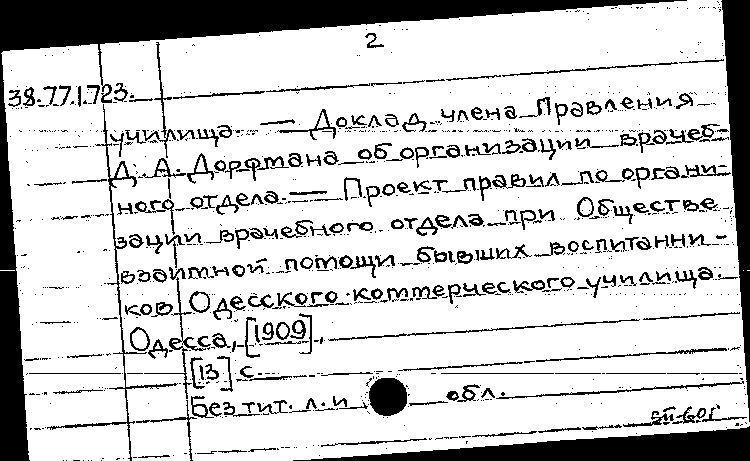 2
38.77.1.723.
училища. — Доклад члена Правления
Д. А. Дорфмана об организации врачеб-
ного отдела. — Проект правил по органи-
зации врачебного отдела при Обществе
взаимной помощи бывших воспитанни-
ков Одесского коммерческого училища.
Одесса, [1909],
[13] с.
Без тит. л. и обл.